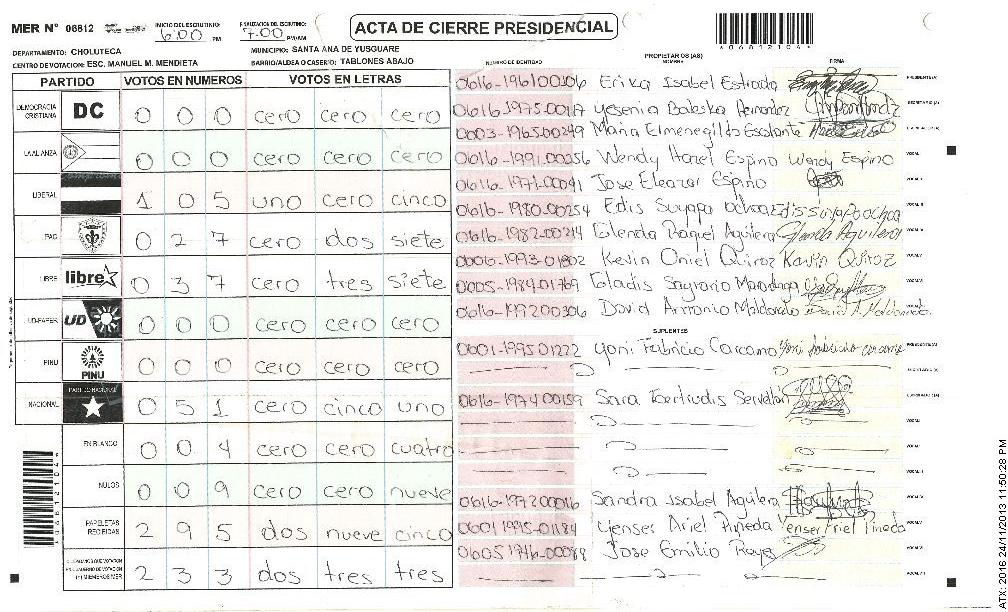 MER N° 06812 INICIO DEL ESCRUTINIO: 6:00 PM FINALIZACION DEL ESCRUTINIO: 7:00 PM/AM ACTA DE CIERRE PRESIDENCIAL
*06812104*
DEPARTAMENTO: CHOLUTECA MUNICIPIO: SANTA ANA DE YUSGUARE
CENTRO DE VOTACION: ESC. MANUEL M. MENDIETA BARRIO/ALDEA O CASERIO: TABLONES ABAJO
PARTIDO VOTOS EN NUMEROS VOTOS EN LETRAS
DEMOCRACIA CRISTIANA DC 0 0 0 cero cero cero
LA ALIANZA 0 0 0 cero cero cero
LIBERAL 1 0 5 uno cero cinco
PAC 0 2 7 cero dos siete
LIBRE libre 0 3 7 cero tres siete
UD-FAPER UD 0 0 0 cero cero cero
PINU PINU 0 0 0 cero cero cero
NACIONAL PARTIDO NACIONAL 0 5 1 cero cinco uno
EN BLANCO 0 0 4 cero cero cuatro
NULOS 0 0 9 cero cero nueve
PAPELETAS RECIBIDAS 2 9 5 dos nueve cinco
CIUDADANOS QUE VOTARON EN CUADERNO DE VOTACION (+) MIEMBROS MER 2 3 3 dos tres tres
NUMERO DE IDENTIDAD PROPIETARIOS (AS) NOMBRE FIRMA
0616-1961-00106 Erika Isabel Estrada PRESIDENTE(A)
0616-1975-00117 Yesenia Baleska Hernandez SECRETARIO (A)
0003-1965-00249 Maria Elmenegilda Escalante ESCRUTADOR (A)
0616-1991-00256 Wendy Hazel Espino Wendy Espino VOCAL I
0616-1971-00091 Jose Eleazar Espino VOCAL II
0616-1980-00254 Edis Suyapa Ochoa Edis Suyapa Ochoa VOCAL III
0616-1982-00214 Glenda Raquel Aguilera Glenda Aguilera VOCAL IV
0006-1993-01802 Kevin Oniel Quiroz Kevin Quiroz VOCAL V
0005-1984-01769 Gladis Sagrario Maradiaga VOCAL VI
0616-1992-00306 David Antonio Maldonado David A. Maldonado VOCAL VII
SUPLENTES
0601-1995-01222 Yoni Fabricio Carcamo Yoni fabricio carcamo PRESIDENTE (A)
SECRETARIO (A)
0616-1974-00159 Sara Gertrudis Servellon ESCRUTADOR (A)
VOCAL I
VOCAL II
VOCAL III
0616-1972-00016 Sandra Isabel Aguilera VOCAL IV
0601-1995-01184 Yenser Ariel Pineda Yenser Ariel Pineda VOCAL V
Jose Emilio Reyes VOCAL VI
VOCAL VII
ATX: 2016 24/11/2013 11:50:28 PM